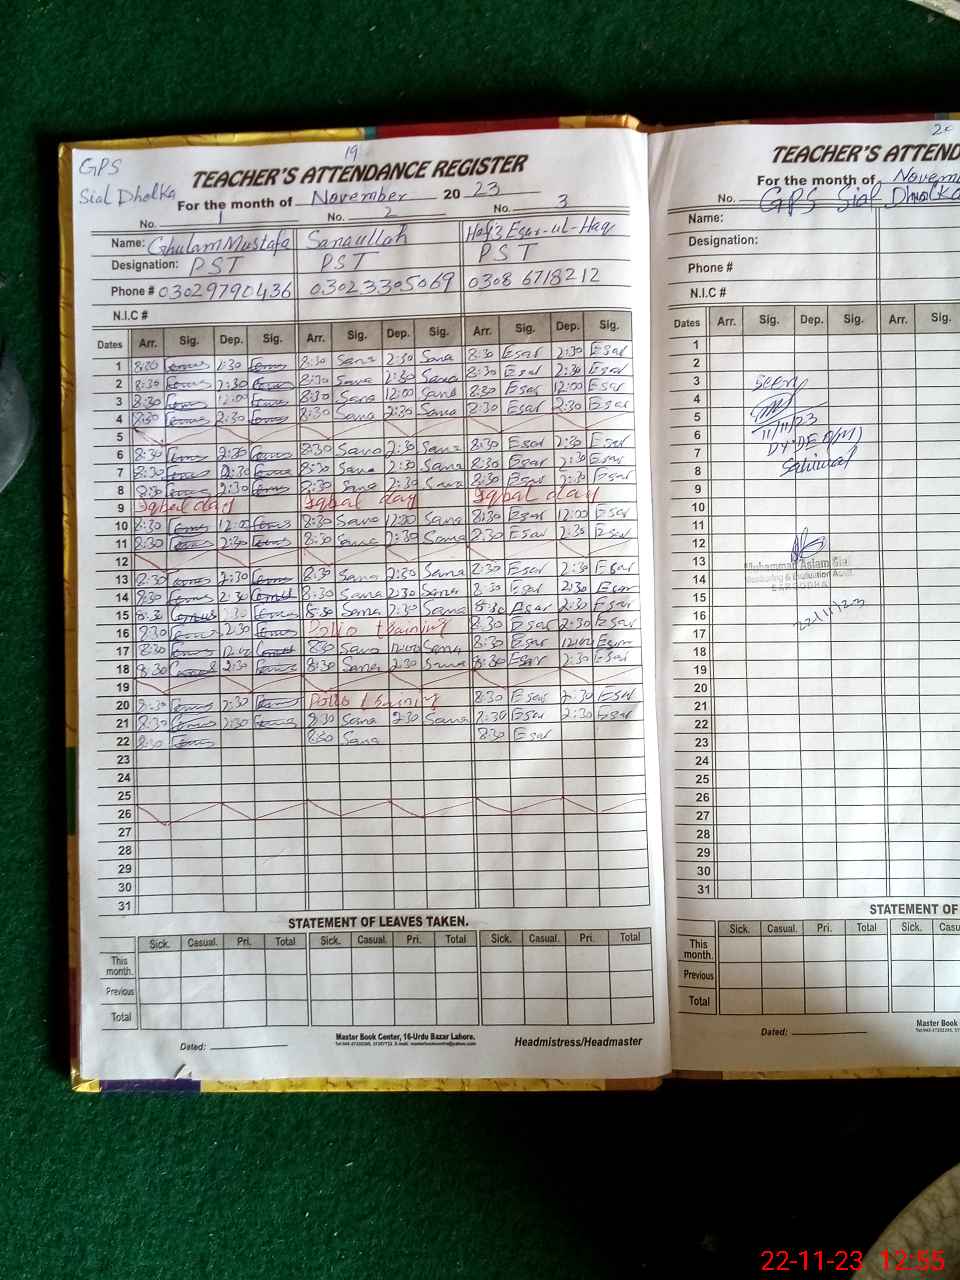 19
GPS
Sial Dholka
TEACHER'S ATTENDANCE REGISTER
For the month of November 2023
No. 1 No. 2 No. 3
Name: Ghulam Mustafa Sanaullah
Designation: PST PST PST
Phone # 03029790436 03023305069 0308 6718212
N.I.C #
Dates Arr. Sig. Dep. Sig. Arr. Sig. Dep. Sig. Arr. Sig. Dep. Sig.
1 8:30 Sana 2:30 Sana 8:30 Esar 2:30 Esar
2 8:30 2:30 8:30 Sana 2:30 Sana 8:30 Esar 2:30 Esar
3 8:30 12:00 8:30 Sana 12:00 Sana 8:30 Esar 12:00 Esar
4 8:30 2:30 8:30 Sana 2:30 Sana 8:30 Esar 2:30 Esar
5
6 8:30 2:30 8:30 Sana 2:30 Sana 8:30 Esar 2:30 Esar
7 8:30 2:30 8:30 Sana 2:30 Sana 8:30 Esar 2:30 Esar
8 8:30 2:30 8:30 Sana 2:30 Sana 8:30 Esar 2:30 Esar
9 Iqbal day Iqbal day Iqbal day
10 8:30 12:00 8:30 Sana 12:00 Sana 8:30 Esar 12:00 Esar
11 8:30 2:30 8:30 Sana 2:30 Sana 8:30 Esar 2:30 Esar
12
13 8:30 2:30 8:30 Sana 2:30 Sana 8:30 Esar 2:30 Esar
14 8:30 2:30 8:30 Sana 2:30 Sana 8:30 Esar 2:30 Esar
15 8:30 8:30 Sana 2:30 Sana 8:30 Esar 2:30 Esar
16 8:30 2:30 Polio training 8:30 Esar 2:30 Esar
17 8:30 12:00 8:30 Sana 12:00 Sana 8:30 Esar 12:00 Esar
18 8:30 2:30 8:30 Sana 2:30 Sana 8:30 Esar 2:30 Esar
19
20 8:30 2:30 Polio training 8:30 Esar 2:30 Esar
21 8:30 2:30 8:30 Sana 2:30 Sana Esar 2:30 Esar
22 8:30 8:30 Sana 8:30 Esar
23
24
25
26
27
28
29
30
31
STATEMENT OF LEAVES TAKEN.
Sick. Casual. Pri. Total Sick. Casual. Pri. Total Sick. Casual. Pri. Total
This month.
Previous
Total
Dated:
Master Book Center, 16-Urdu Bazar Lahore.
Headmistress/Headmaster
20
TEACHER'S ATTEND
For the month of Novem
No. GPS Sial Dholka
Name:
Designation:
Phone #
N.I.C #
Dates Arr. Sig. Dep. Sig. Arr. Sig.
1
2
3 Seen
4
5
6 11/11/23
7 Dy DEO(M)
8 Sahiwal
9
10
11
12
13 Muhammad Aslam Sial
14 Monitoring & Evaluation
SARGODHA
15
16 22/11/23
17
18
19
20
21
22
23
24
25
26
27
28
29
30
31
STATEMENT OF
Sick. Casual. Pri. Total Sick. Casu
This month.
Previous
Total
Dated:
Master Book
22-11-23 12:55